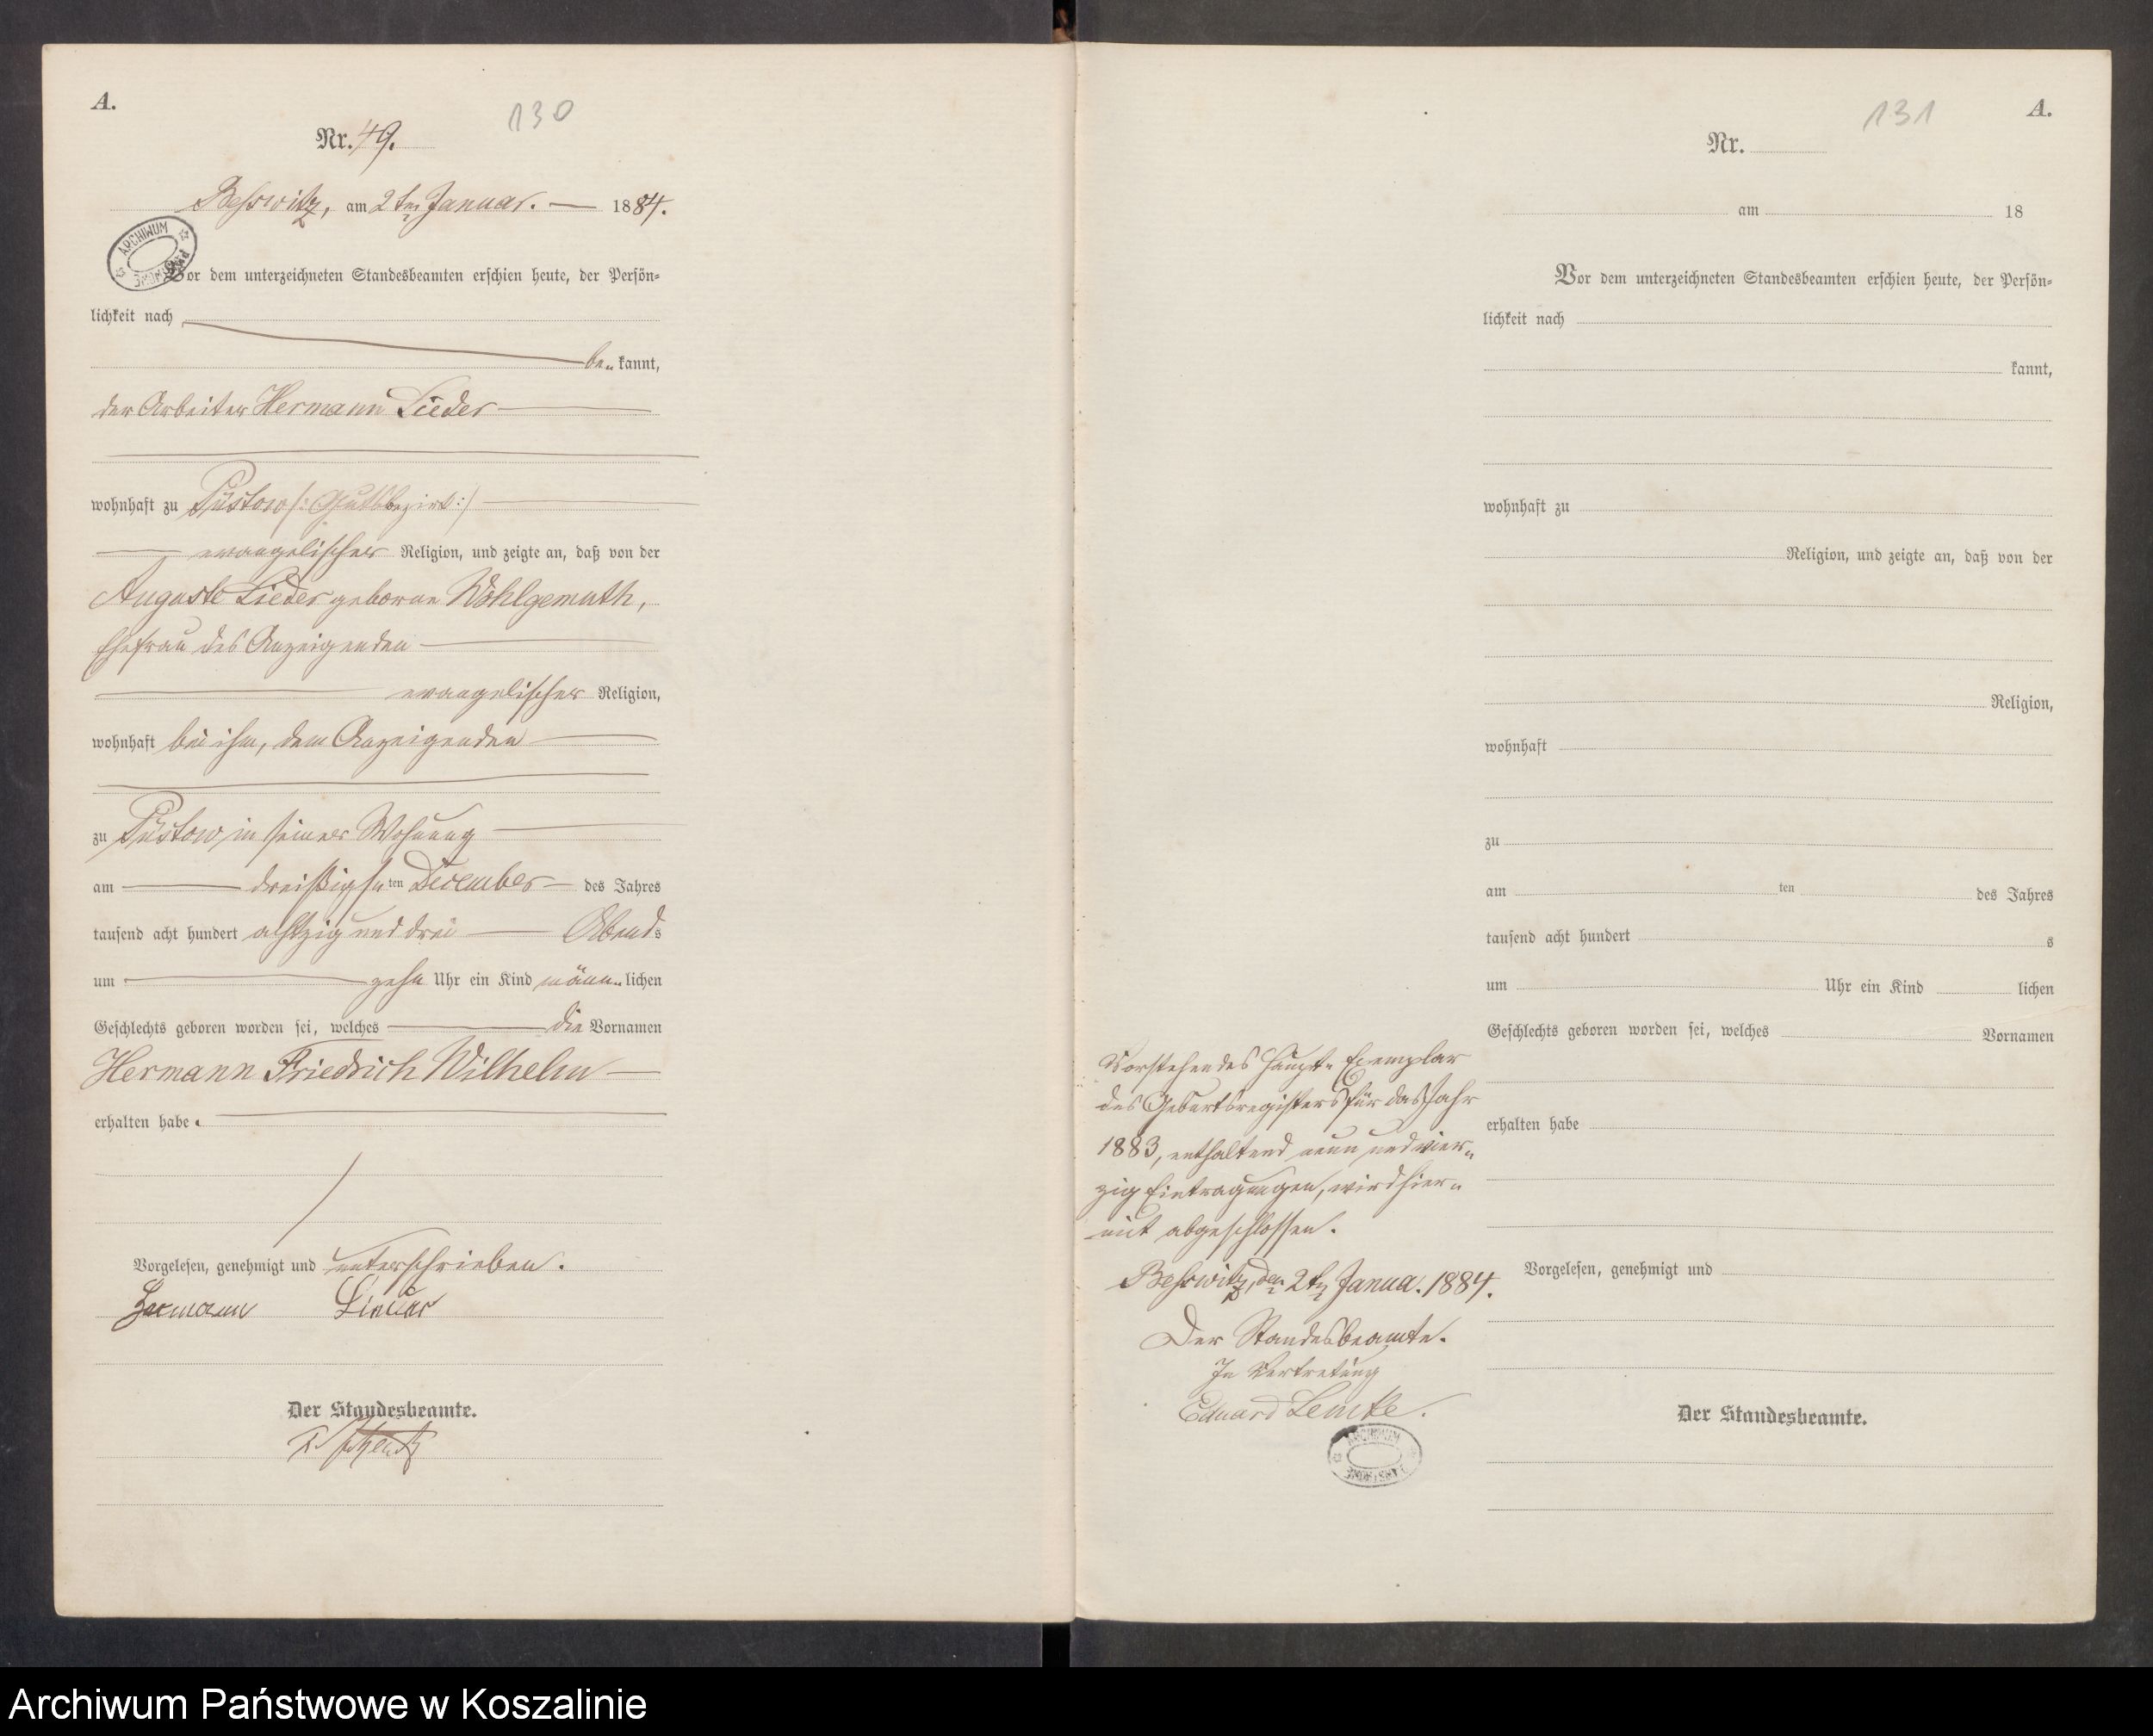 A.
130
Nr. 49.
Beßwitz, am 2ten Januar. 1884.
ARCHIWUM
Vor dem unterzeichneten Standesbeamten erschien heute, der Persön-
lichkeit nach
be- kannt,
der Arbeiter Hermann Lieder
wohnhaft zu Püstow /: Gutsbezirk :/
evangelischer Religion, und zeigte an, daß von der
Auguste Lieder geborne Wohlgemuth,
Ehefrau des Anzeigenden
evangelischer Religion,
wohnhaft bei ihm, dem Anzeigenden
zu Püstow in seiner Wohnung
am dreißigsten December des Jahres
tausend acht hundert achtzig und drei Abends
um zehn Uhr ein Kind männ- lichen
Geschlechts geboren worden sei, welches die Vornamen
Hermann Friedrich Wilhelm
erhalten habe.
Vorgelesen, genehmigt und unterschrieben.
Hermann Lieder
Der Standesbeamte.
131
A.
Nr.
am 18
Vor dem unterzeichneten Standesbeamten erschien heute, der Persön-
lichkeit nach
kannt,
wohnhaft zu
Religion, und zeigte an, daß von der
Religion,
wohnhaft
zu
am ten des Jahres
tausend acht hundert s
um Uhr ein Kind lichen
Geschlechts geboren worden sei, welches Vornamen
erhalten habe
Vorgelesen, genehmigt und
Der Standesbeamte.
Vorstehendes Haupt-Exemplar
des Geburtsregisters für das Jahr
1883, enthaltend neun und vier-
zig Eintragungen, wird hier-
mit abgeschlossen.
Beßwitz, den 2ten Januar. 1884.
Der Standesbeamte.
In Vertretung
Eduard Lemke.
ARCHIWUM
Archiwum Państwowe w Koszalinie